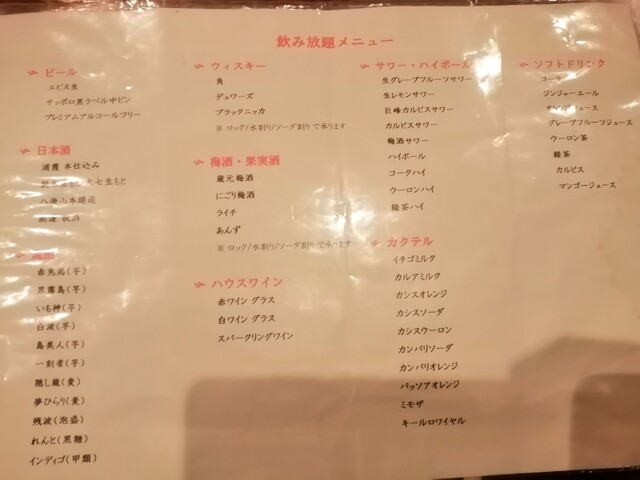 飲み放題メニュー
ビール
エビス生
サッポロ黒ラベル中ビン
プレミアムアルコールフリー
日本酒
浦霞 本仕込み
大七生もと
八海山本醸造
焼酎
赤兎馬(芋)
黒霧島(芋)
いも神(芋)
白波(芋)
島美人(芋)
一刻者(芋)
隠し蔵(麦)
夢ひらり(麦)
残波(泡盛)
れんと(黒糖)
インディゴ(甲類)
ウィスキー
角
デュワーズ
ブラックニッカ
※ ロック/水割り/ソーダ割り で承ります
梅酒・果実酒
蔵元梅酒
にごり梅酒
ライチ
あんず
※ ロック/水割り/ソーダ割り で承ります
ハウスワイン
赤ワイン グラス
白ワイン グラス
スパークリングワイン
サワー・ハイボール
生グレープフルーツサワー
生レモンサワー
巨峰カルピスサワー
カルピスサワー
梅酒サワー
ハイボール
コークハイ
ウーロンハイ
緑茶ハイ
カクテル
イチゴミルク
カルアミルク
カシスオレンジ
カシスソーダ
カシスウーロン
カンパリソーダ
カンパリオレンジ
パッソアオレンジ
ミモザ
キールロワイヤル
ソフトドリンク
コーラ
ジンジャーエール
オレンジジュース
グレープフルーツジュース
ウーロン茶
緑茶
カルピス
マンゴージュース